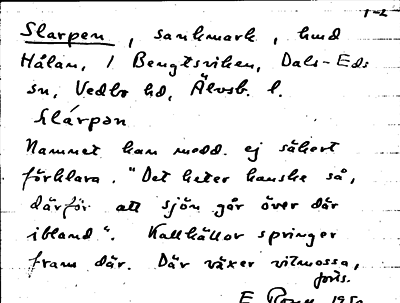 1-2
Slarpen, sankmark, hmd
Hålan, 1 Bengtsviken, Dals-Eds
sn, Vedbo hd, Älvsb. l.
slárpən
Namnet kan medd. ej säkert
förklara. "Det heter kanske så,
därför att sjön går över där
ibland". Kallkällor springer
fram där. Där växer vitmossa,
forts.
E. 1950